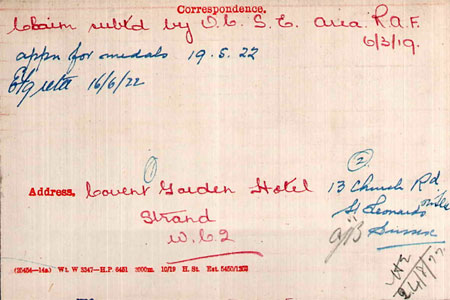 Correspondence.
Claim subtd by O.C. S.E. area R.A.F.
6/3/19.
appn for medals 19.5.22
16/6/22
① ②
Address. Covent Garden Hotel
Strand
W.C.2
13 Church Rd
St Leonards
Sussex
24/8/22
(20454—14a) Wt. W 3347—H.P. 6451 2000m. 10/19 H. St. Est. 5450/1203